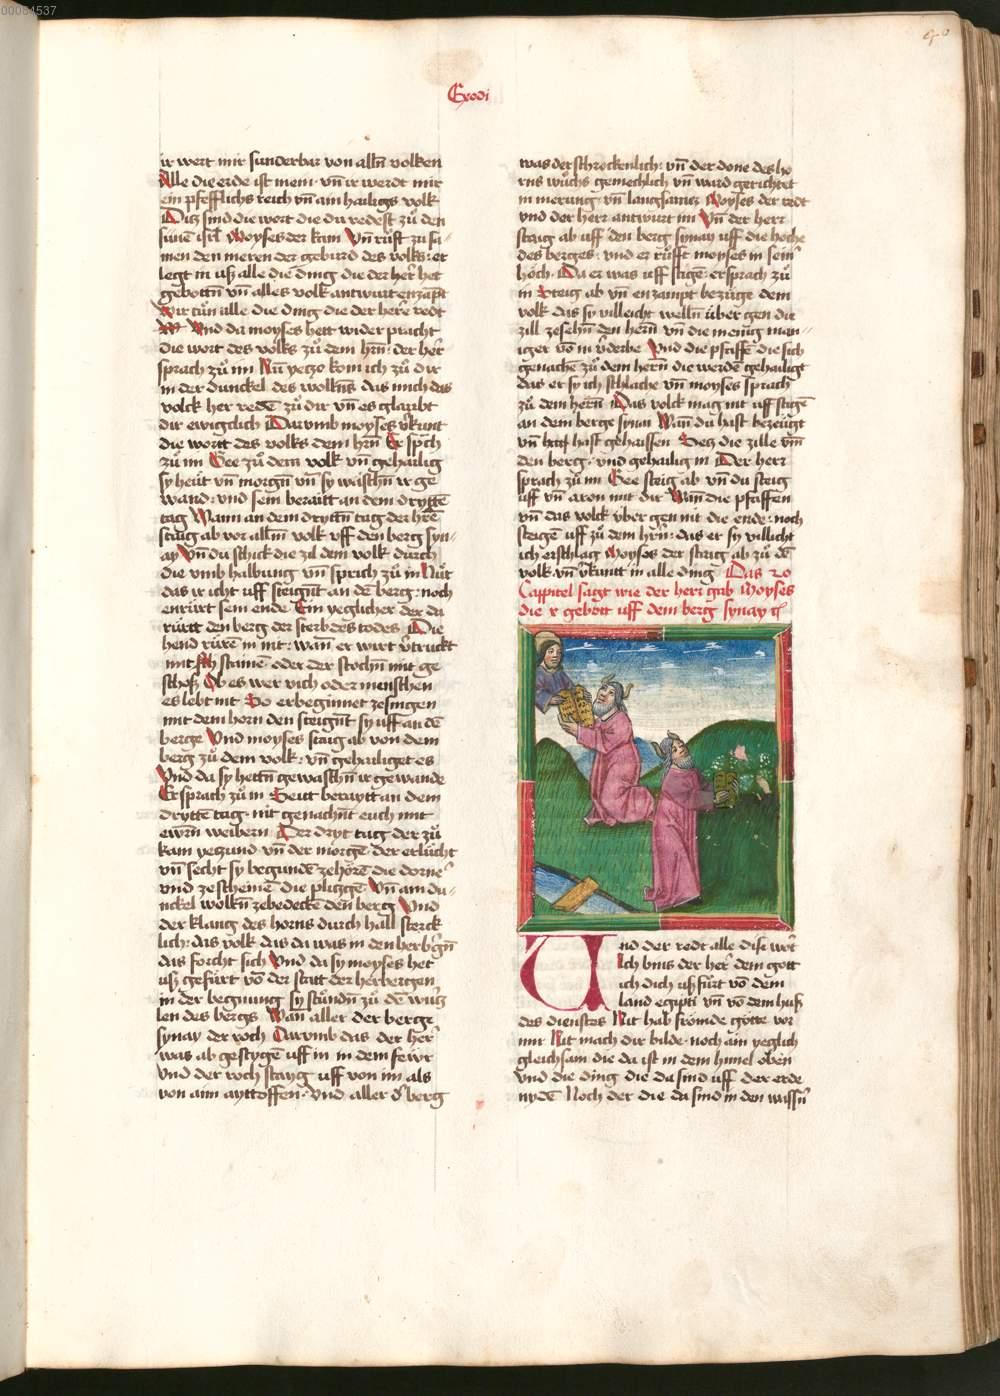 00084537
Exodi
ir wert mir sunderbar von alln̄ volken
Alle die erde ist mein · vn̄ ir werdt mir
ein pfefflichs reich vn̄ am hailigs volk
Ditz sind die wort die du redest zů den
sůnē isrl̄ Moyses der kam Vn̄ růft zu sa
men den meren der geburd des volks: er
legt in uß alle die ding die der her̄ het
gebottn̄ vn̄ alles volk antwurt enzāpt
Wir tůn alle die ding die der here redt
Vnd da moyses hett wider pracht
die wort des volks zů dem hrn̄: der her̄
sprach zů im Nū yetzo kom ich zů dir
in der dunckel des wolkn̄s das mich das
volck her redē zů dir vn̄ es glaubt
dir ewigclich Darvmb moyses v̄kunt
die wortt des volks dem hrn̄ Er sp̄ch
zů im Gee zů dem volk vn̄ gehailig
sy heůt vn̄ morgn̄ vn̄ sy wäschn̄ ir ge
wand: vnd sein beraitt an dem dryttē
tag Wann an dem dryttn̄ tag der h̄re
staig ab vor alln̄ volk vff den berg syn
ay Vn̄ du schick die zil dem volk durch
die vmb halbung vn̄ sprich zů in Hůt
das ir icht uff steignt an dē berg: noch
enrürt sein ende Ein yeglicher der da
růrtt den berg der sterb des todes Die
hend růrē in nit: wan̄ er wirt v̄truckt
mit staine · oder der stochn̄ mit ge
schoß Ob es wer vich oder menschen
es lebt nit So er beginnet ze singen
mit dem horn den steignt sy uff an dē
berge Vnd moyses staig ab von dem
berg zů dem volk: vn̄ gehailiget es
Vnd da sy hettn̄ gewaschn̄ ir gewande
Er sprach zů in Seit beraytt an dem
dryttē tag · nit genachnt euch mit
ewrn̄ weibern Der dryt tag der zů
kam yetzund vn̄ der morgē · der erlücht
vn̄ secht sy begundē ze hörē die dorne
vnd ze scheinē die plitzgē Vn̄ am du
nckel wolkn̄ ze bedeckē den berg Vnd
der klang des horns durch hall sterck
lich: das volk das da was in den herb̄gn̄
das forcht sich Vnd da sy moyses het
uß gefürt vō der statt der herbergen
in der begnung sy stůndn̄ zů dē wurtz
len des bergs Wan̄ aller der berge
synay der roch Darvmb das der her̄
was ab gestygē uff in in dem feẅr
Vnd der roch stayg uff von im als
von aim ayttoffen · Vnd aller d̄ berg
was der schrockenlich: vn̄ der done des ho
rns wůchs gemechlich vn̄ ward gerichtet
in merung vn̄ langsamer Moyses der redt
vnd der herr antwurt im Vn̄ der herr
staig ab uff den berg synay uff die höche
des berges · vnd er růfft moyses in sein̄
höch · Da er was uff stigē · er sprach zů
in Steig ab vn̄ enzampt bezüge dem
volk das sy villeicht welln̄ über gen die
zill ze sehn̄ den hern̄ vn̄ die menig man
iger vō in v̄derbe Vnd die pfaffē die sich
genachē zů dem hern̄ die werdē gehailigt
das er sy ich schlache vn̄ moyses sprach
zů dem hern̄ Das volck mag nit uff stigē
an dem berge synai Wan̄ du hast bezeůgt
vn̄ hast gehaissen Setz die zille vm̄
den berg · vnd gehailig in Der herr
sprach zů im Gee steig ab vn̄ du steig
uff vn̄ aron mit dir Wan̄ die pfaffen
vn̄ das volck über gen nit die ende: noch
steigē uff zů dem hrn̄: das er sy villicht
icht erschlag Moyses der staig ab zů dē
volk vn̄ v̄kuntt in alle ding Das 20
Cappitel sagt wie der herr gab Moyses
die x gebott uff dem berg synay
Und der redt alle dise wort
Ich bins der her̄ dem gott
ich dich uß fürt vō dem
land egipti vn̄ vō dem huß
des dienstes Nit hab frömde götte vor
mir Nit mach dir bilde · noch ain yeglich
gleichsam die da ist in dem himel oben
Vnd die ding die da sind uff der erde
nydē Noch der die da sind in den wassn̄